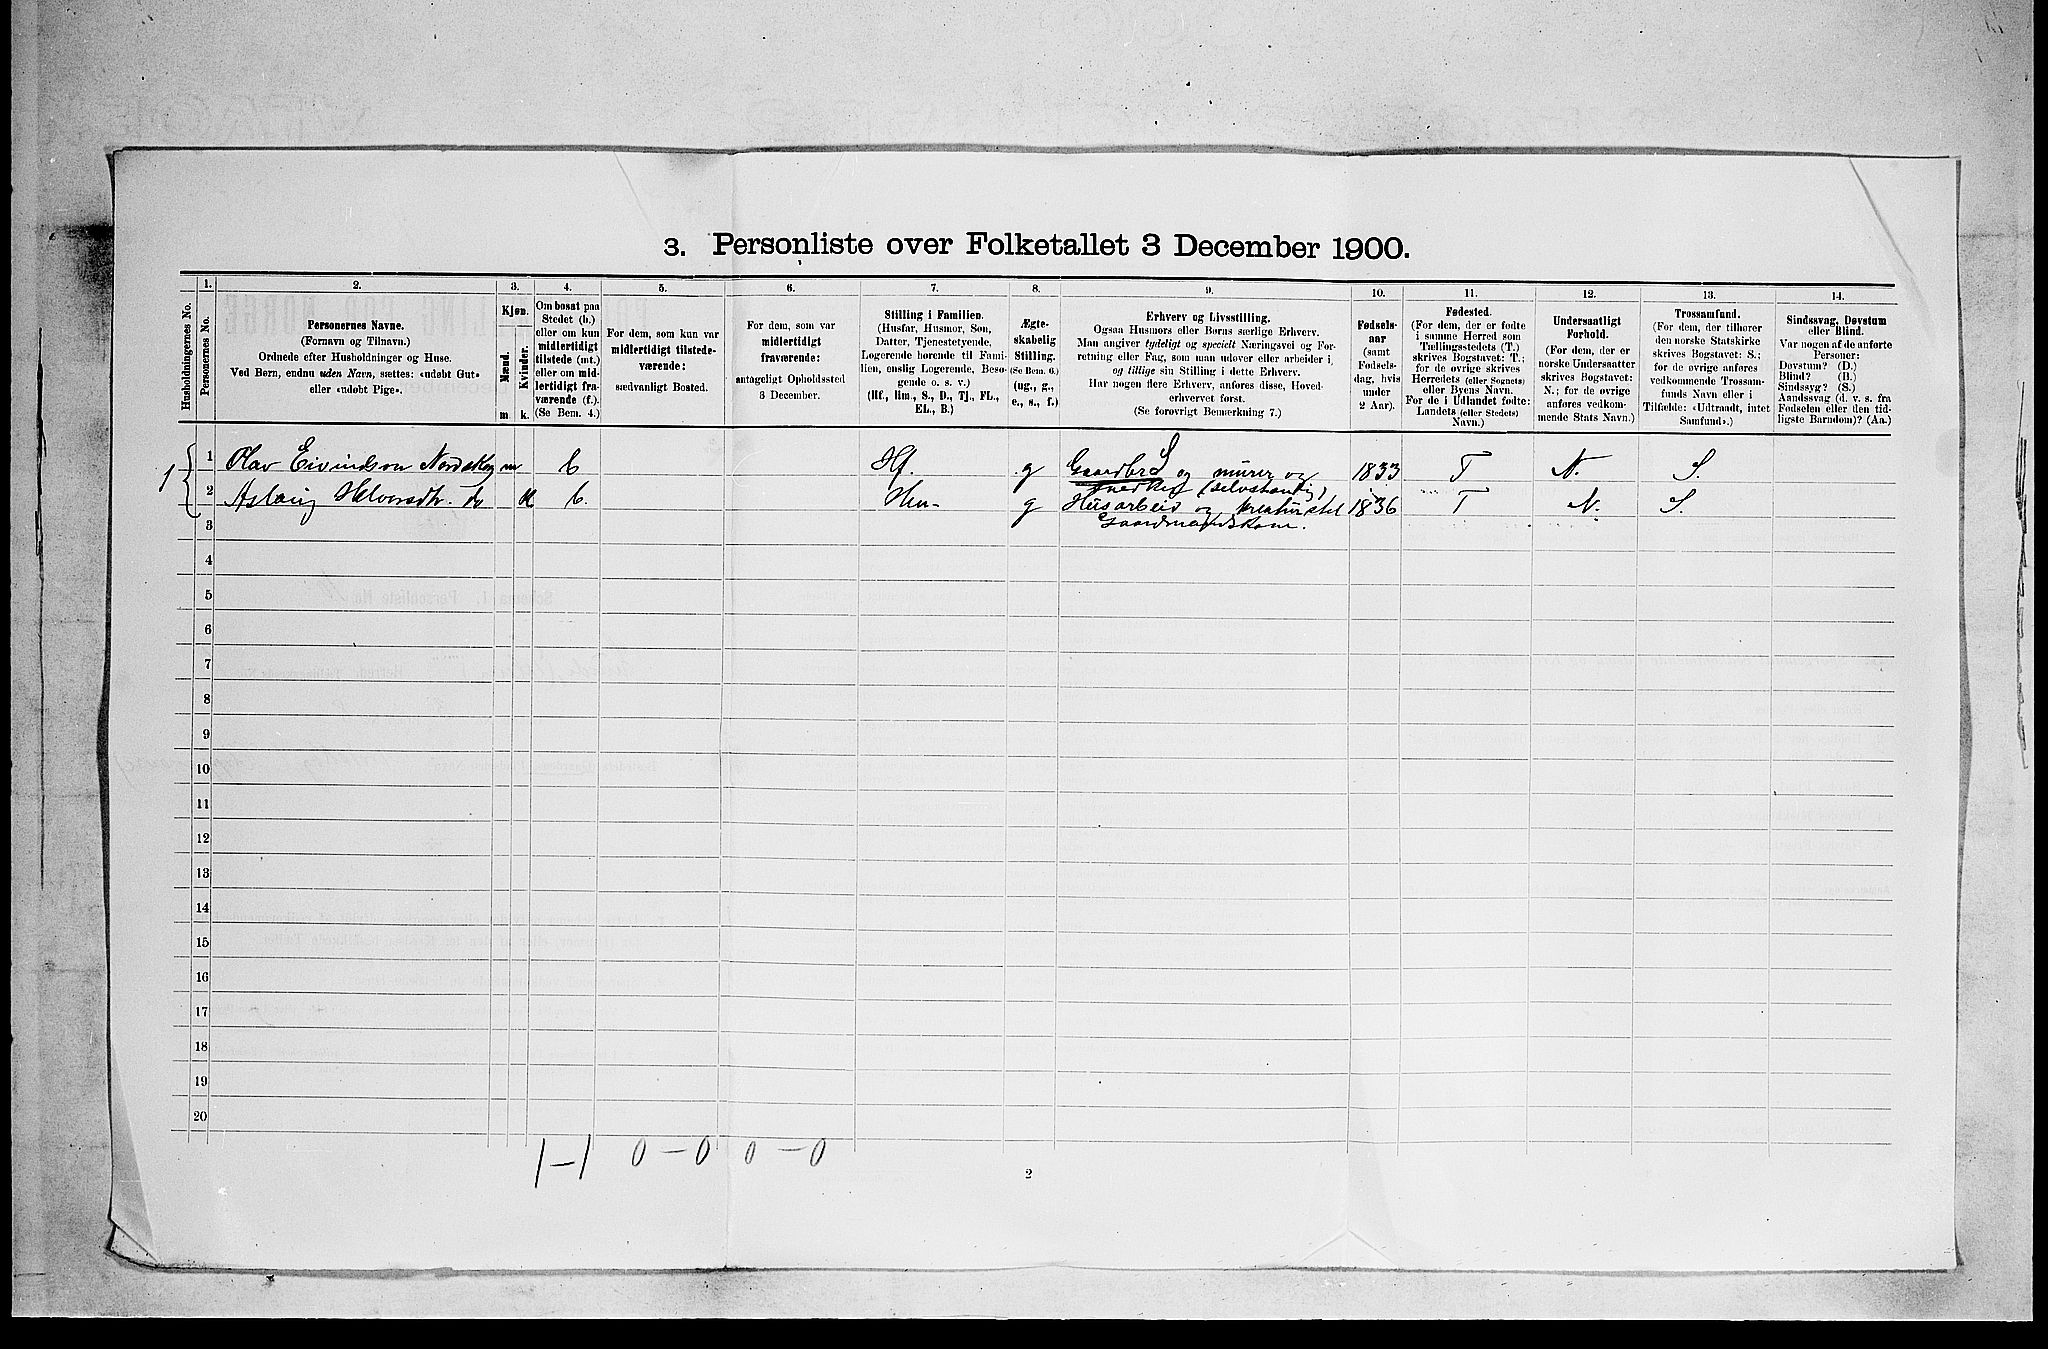 3. Personliste over Folketallet 3 December 1900.
Husholdningernes No.
1.
Personernes No.
2.
Personernes Navne.
(Fornavn og Tilnavn.)
Ordnede efter Husholdninger og Huse.
Ved Børn, endnu uden Navn, sættes: «udøbt Gut»
eller «udøbt Pige».
3.
Kjøn.
Mænd.
m.
Kvinder.
k.
4.
Om bosat paa
Stedet (b.)
eller om kun
midlertidigt
tilstede (mt.)
eller om mid-
lertidigt fra-
værende (f.).
(Se Bem. 4.)
5.
For dem, som kun var
midlertidigt tilstede-
værende:
sædvanligt Bosted.
6.
For dem, som var
midlertidigt
fraværende:
antageligt Opholdssted
3 December.
7.
Stilling i Familien.
(Husfar, Husmor, Søn,
Datter, Tjenestetyende,
Logerende hørende til Fami-
lien, enslig Logerende, Besø-
gende o. s. v.)
(Hf., Hm., S., D., Tj., FL.,
EL., B.)
8.
Ægte-
skabelig
Stilling.
(Se Bem. 6.)
(ug., g.,
e., s., f.)
9.
Erhverv og Livsstilling.
Ogsaa Husmors eller Børns særlige Erhverv.
Man angiver tydeligt og specielt Næringsvei og For-
retning eller Fag, som man udøver eller arbeider i,
og tillige sin Stilling i dette Erhverv.
Har nogen flere Erhverv, anføres disse, Hoved-
erhvervet først.
(Se forøvrigt Bemærkning 7.)
10.
Fødsels-
aar
(samt
Fødsels-
dag, hvis
under
2 Aar).
11.
Fødested.
(For dem, der er fødte
i samme Herred som
Tællingsstedets (T.)
skrives Bogstavet: T.;
for de øvrige skrives
Herredets (eller Sognets)
eller Byens Navn.
For de i Udlandet fødte:
Landets (eller Stedets)
Navn.)
12.
Undersaatligt
Forhold.
(For dem, der er
norske Undersaatter
skrives Bogstavet:
N.; for de øvrige
anføres vedkom-
mende Stats Navn.)
13.
Trossamfund.
(For dem, der tilhører
den norske Statskirke
skrives Bogstavet: S.;
for de øvrige anføres
vedkommende Trossam-
funds Navn eller i
Tilfælde: «Udtraadt, intet
Samfund».)
14.
Sindssvag, Døvstum
eller Blind.
Var nogen af de anførte
Personer:
Døvstum? (D.)
Blind? (B.)
Sindssyg? (S.)
Aandssvag (d. v. s. fra
Fødselen eller den tid-
ligste Barndom)? (Aa.)
1 1 Olav Eivindson Nordskog m b Hf. g Gaardbr S og murer og 1833 T N. S.
snedker (selvstændig)
2 Aslaug Halvorsdtr. do k b. Hm. g Husarbeid og kreaturstel 1836 T N. S.
Gaardmandskone.
3
4
5
6
7
8
9
10
11
12
13
14
15
16
17
18
19
20
1–1 0–0 0–0
2